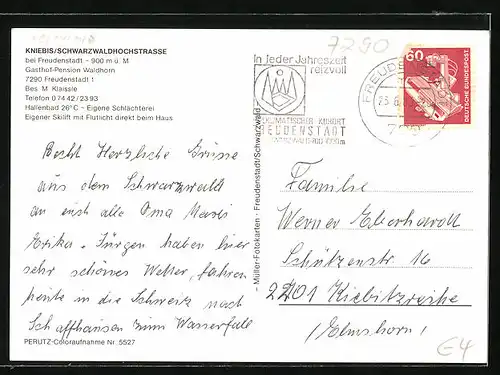 KNIEBIS/SCHWARZWALDHOCHSTRASSE
bei Freudenstadt - 900 m ü. M
Gasthof-Pension Waldhorn
7290 Freudenstadt 1
Bes. M. Klaissle
Telefon 07442/2393
Hallenbad 26°C – Eigene Schlachterei
Eigener Skilift mit Flutlicht direkt beim Haus
Recht Herzliche Grüsse
aus dem Schwarzwald
an euch alle Oma Maris
Erika - Jürgen haben hier
sehr schönes Wetter, fahren
heute in die Schweiz nach
Schaffhausen zum Wasserfall
PERUTZ-Coloraufnahme Nr. 55/27
– Müller-Fotokarten · Freudenstadt/Schwarzwald
7290
In jeder Jahreszeit
reizvoll
KLIMATISCHER KURORT
FREUDENSTADT
60
DEUTSCHE BUNDESPOST
Familie
Werner Eberhardt
Schützenstr. 16
2201 Kiebitzreihe
(Elmshorn)
E4